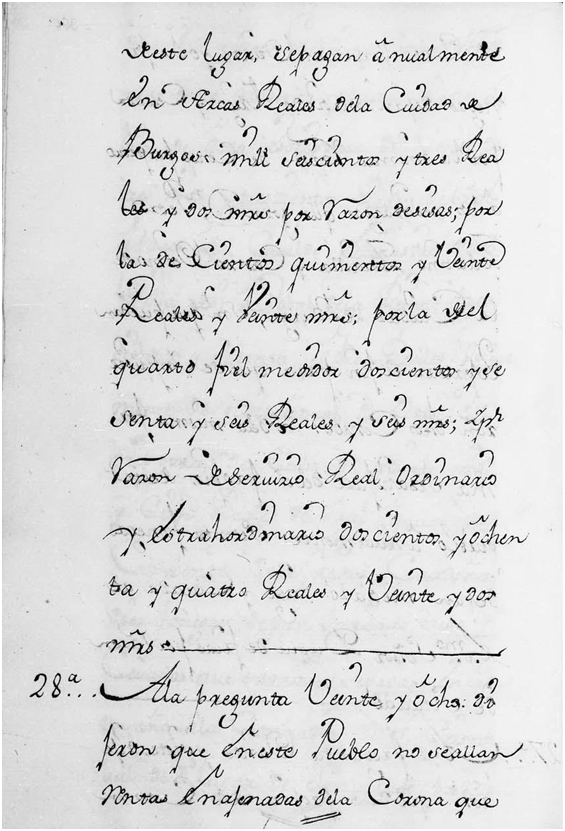 deeste lugar, sepagan ānualmente
En Arcas Reales dela Ciudad de
Burgos mill seiscientos y tres Rea
les y dos mrs por Razon desisas; por
la de Cientos quinientos y Veinte
Reales y Veinte mrs; porla del
quarto fiel medidor doscientos y se
senta y seis Reales y seis mrs; ypr
Razon deServizio Real Ordinario
y Estrahordinario doscientos y ochen
ta y quatro Reales y Veinte y dos
mrs
28ª.. Ala pregunta Veinte y ocho: di
jeron que Eneste Pueblo no seallan
Rentas Enajenadas dela Corona que